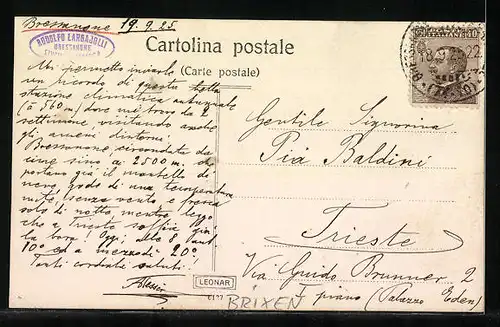 Bressanone 19.9.25
RODOLFO LARGAJOLLI
BRESSANONE
Cartolina postale
(Carte postale)
ITALIANE 40
18.9.25.22
Mi permetto inviarle
un ricordo di questa bella
stazione climatica autunnale
(a 560 m) dove mi trovo da 2
settimane visitando anche
gli ameni dintorni.
Bressanone circondata da
cime sino a 2500 m. che
portano già il mantello di
neve, gode di una temperatura
mite, senza vento e fresca
solo di notte, mentre leggo
che a Trieste soffia già
la bora! Oggi alle 8 ant.
10° ed a mezzodì 20°.
Tanti cordiali saluti!
Gentile Signorina
Pia Baldini
Trieste
Via Guido Brunner 2
I piano (Palazzo Eden)
LEONAR
6127
BRIXEN